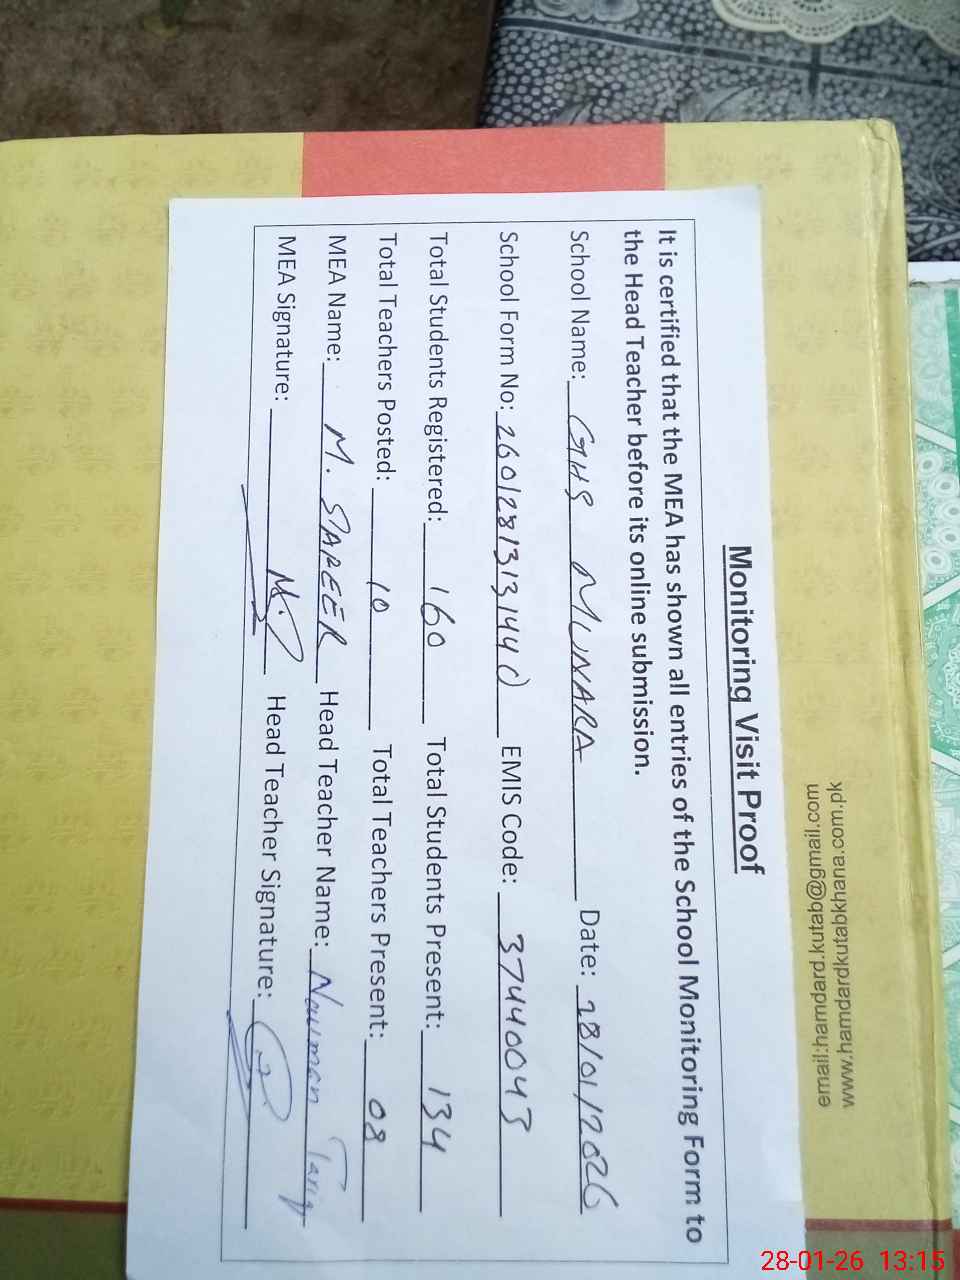 Monitoring Visit Proof
It is certified that the MEA has shown all entries of the School Monitoring Form to
the Head Teacher before its online submission.
School Name: GHS MUNARA Date: 28/01/2026
School Form No: 2601281313144 EMIS Code: 37440043
Total Students Registered: 160 Total Students Present: 134
Total Teachers Posted: 10 Total Teachers Present: 08
MEA Name: M. SAFEER Head Teacher Name: Nauman Tariq
MEA Signature: Head Teacher Signature:
www.hamdardkutabkhana.com.pk
email:hamdard.kutab@gmail.com
28-01-26 13:15